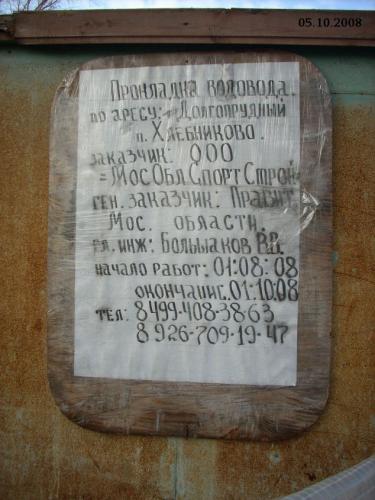 05.10.2008
Прокладка водовода.
по аресу: г Долгопрудный
п. Хлебниково.
заказчик: ООО
=МосОблСпортСтрой=
ген. заказчик: Правит.
Мос. области.
гл. инж: Большаков В.В.
начало работ: 01:08:08
окончание. 01:10:08
тел: 8 499-408-38-63
8 926-709-19-47